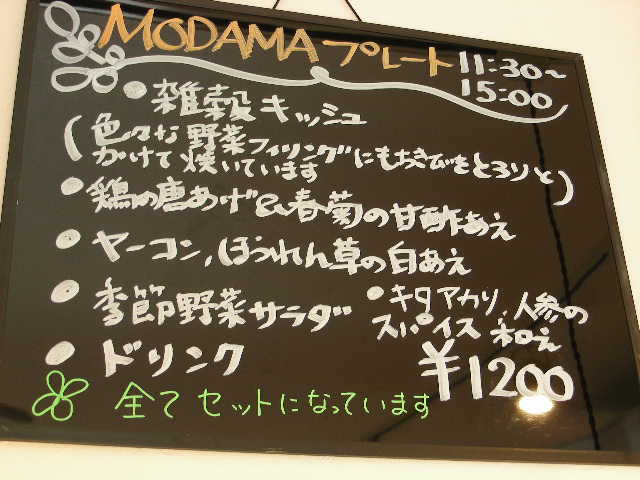 MODAMAプレート 11:30～
15:00
●雑穀キッシュ
(色々な野菜フィリングにもちきびをとろりと
かけて焼いています)
●鶏の唐あげ&春菊の甘酢あえ
●ヤーコン,ほうれん草の白あえ
●季節野菜サラダ
●キタアカリ,人参の
スパイス和え
●ドリンク
¥1200
全てセットになっています